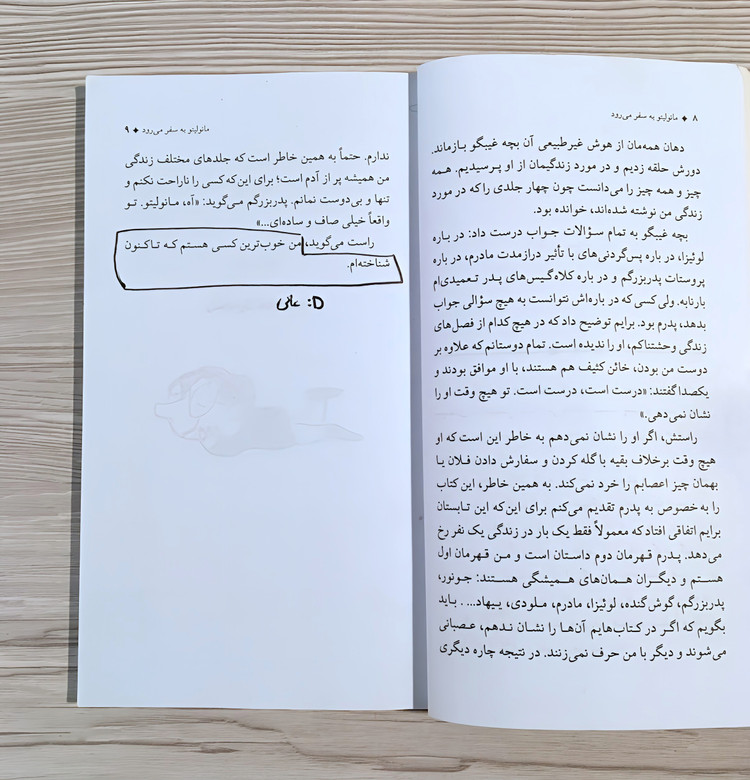 ۸ ♦ مانولیتو به سفر می‌رود
دهان همه‌مان از هوش غیرطبیعی آن بچه غیبگو بازماند.
دورش حلقه زدیم و در مورد زندگیمان از او پرسیدیم. همه
چیز و همه چیز را می‌دانست چون چهار جلدی را که در مورد
زندگی من نوشته شده‌اند، خوانده بود.
بچه غیبگو به تمام سؤالات جواب درست داد: در باره
لوئیزا، در باره پس‌گردنی‌های با تأثیر درازمدت مادرم، در باره
پروستات پدربزرگم و در باره کلاه‌گیس‌های پدر تعمیدی‌ام
بارنابه. ولی کسی که در باره‌اش نتوانست به هیچ سؤالی جواب
بدهد، پدرم بود. برایم توضیح داد که در هیچ کدام از فصل‌های
زندگی وحشتناکم، او را ندیده است. تمام دوستانم که علاوه بر
دوست من بودن، خائن کثیف هم هستند، با او موافق بودند و
یکصدا گفتند: «درست است، درست است. تو هیچ وقت او را
نشان نمی‌دهی.»
راستش، اگر او را نشان نمی‌دهم به خاطر این است که او
هیچ وقت برخلاف بقیه با گله کردن و سفارش دادن فلان یا
بهمان چیز اعصابم را خرد نمی‌کند. به همین خاطر، این کتاب
را به‌خصوص به پدرم تقدیم می‌کنم برای این‌که این تابستان
برایم اتفاقی افتاد که معمولاً فقط یک بار در زندگی یک نفر رخ
می‌دهد. پدرم قهرمان دوم داستان است و من قهرمان اول
هستم و دیگران همان‌های همیشگی هستند: جونور،
پدربزرگم، گوش‌گنده، لوئیزا، مادرم، ملودی، ییهاد... . باید
بگویم که اگر در کتاب‌هایم آن‌ها را نشان ندهم، عصبانی
می‌شوند و دیگر با من حرف نمی‌زنند. در نتیجه چاره دیگری
مانولیتو به سفر می‌رود ♦ ۹
ندارم. حتماً به همین خاطر است که جلدهای مختلف زندگی
من همیشه پر از آدم است؛ برای این‌که کسی را ناراحت نکنم و
تنها و بی‌دوست نمانم. پدربزرگم می‌گوید: «آه، مانولیتو. تو
واقعاً خیلی صاف و ساده‌ای...»
راست می‌گوید، من خوب‌ترین کسی هستم که تاکنون
شناخته‌ام.
عالی :D